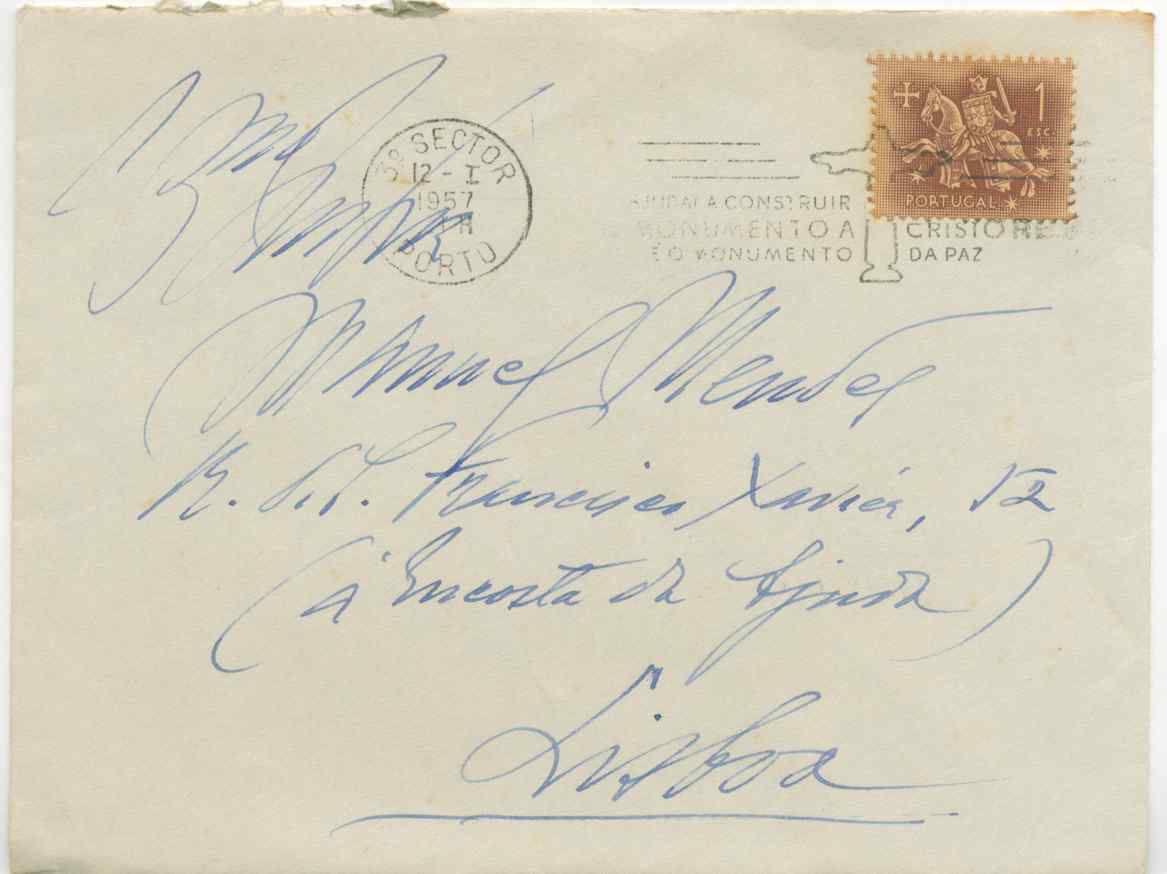 3º SECTOR
12 - I
1957
PORTO
1
ESC.
PORTUGAL
AJUDAI A CONSTRUIR
MONUMENTO A CRISTO REI
É O MONUMENTO DA PAZ
Manuel Mendes
R. S. Francisco Xavier, 52
(à Encosta da Ajuda)
Lisboa